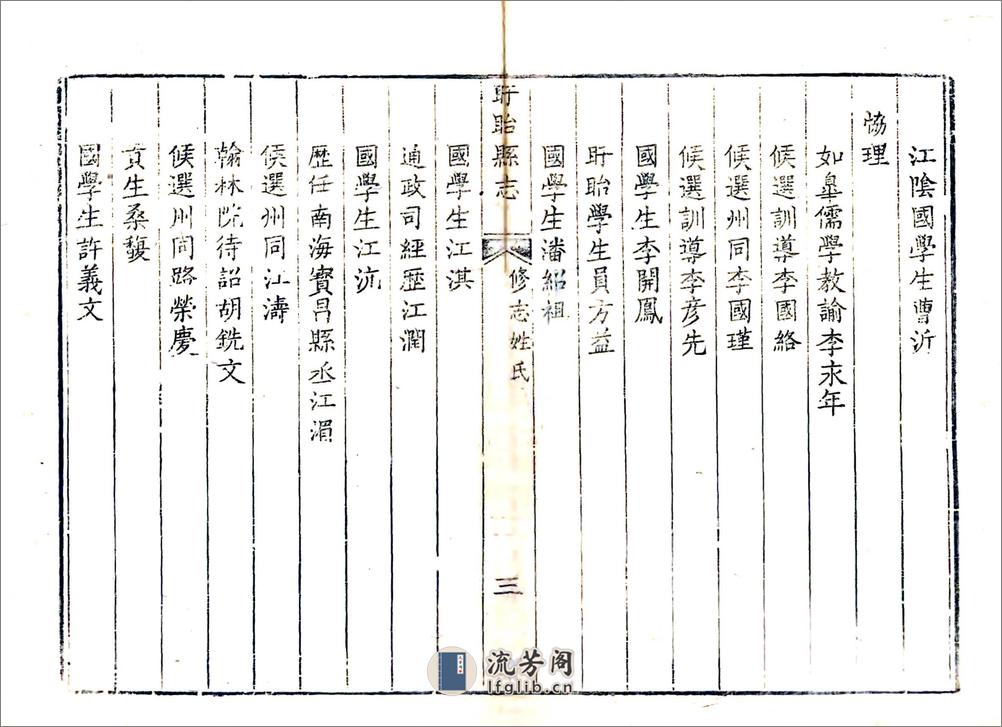 江陰國學生曹沂
協理
如臯儒學教諭李永年
候選訓導李國絡
候選州同李國瑾
候選訓導李彥先
國學生李開鳳
盱眙學生員方益
國學生潘紹祖
盱眙縣志
修志姓氏
三
國學生江淇
通政司經歷江潤
國學生江沆
歷任南海寶昌縣丞江湄
候選州同江濤
翰林院待詔胡銑文
候選州同路榮慶
貢生桑馥
國學生許義文
流芳阁
lfglib.cn